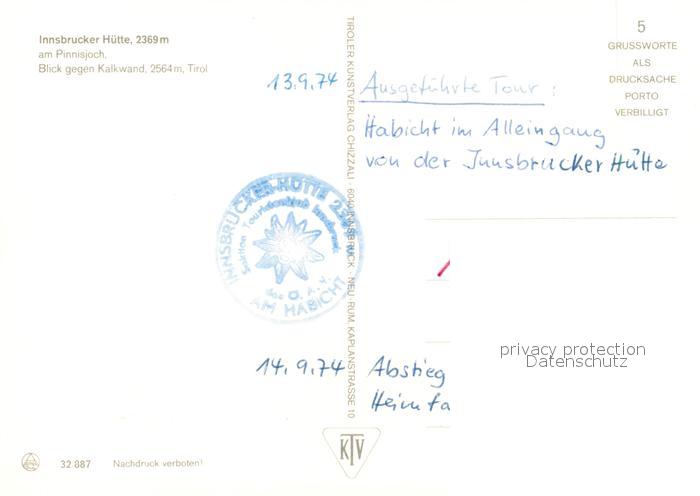 Innsbrucker Hütte, 2369 m
am Pinnisjoch,
Blick gegen Kalkwand, 2564 m, Tirol
TIROLER KUNSTVERLAG CHIZZALI · 6040 INNSBRUCK - NEU-RUM, KAPLANSTRASSE 10
5
GRUSSWORTE
ALS
DRUCKSACHE
PORTO
VERBILLIGT
13.9.74 Ausgeführte Tour :
Habicht im Alleingang
von der Innsbrucker Hütte
INNSBRUCKER-HÜTTE
Sektion Touristenklub Innsbruck
des Ö. A. V.
AM HABICHT
14.9.74 Abstieg
Heimfa
privacy protection
Datenschutz
KTV
32 887 Nachdruck verboten!